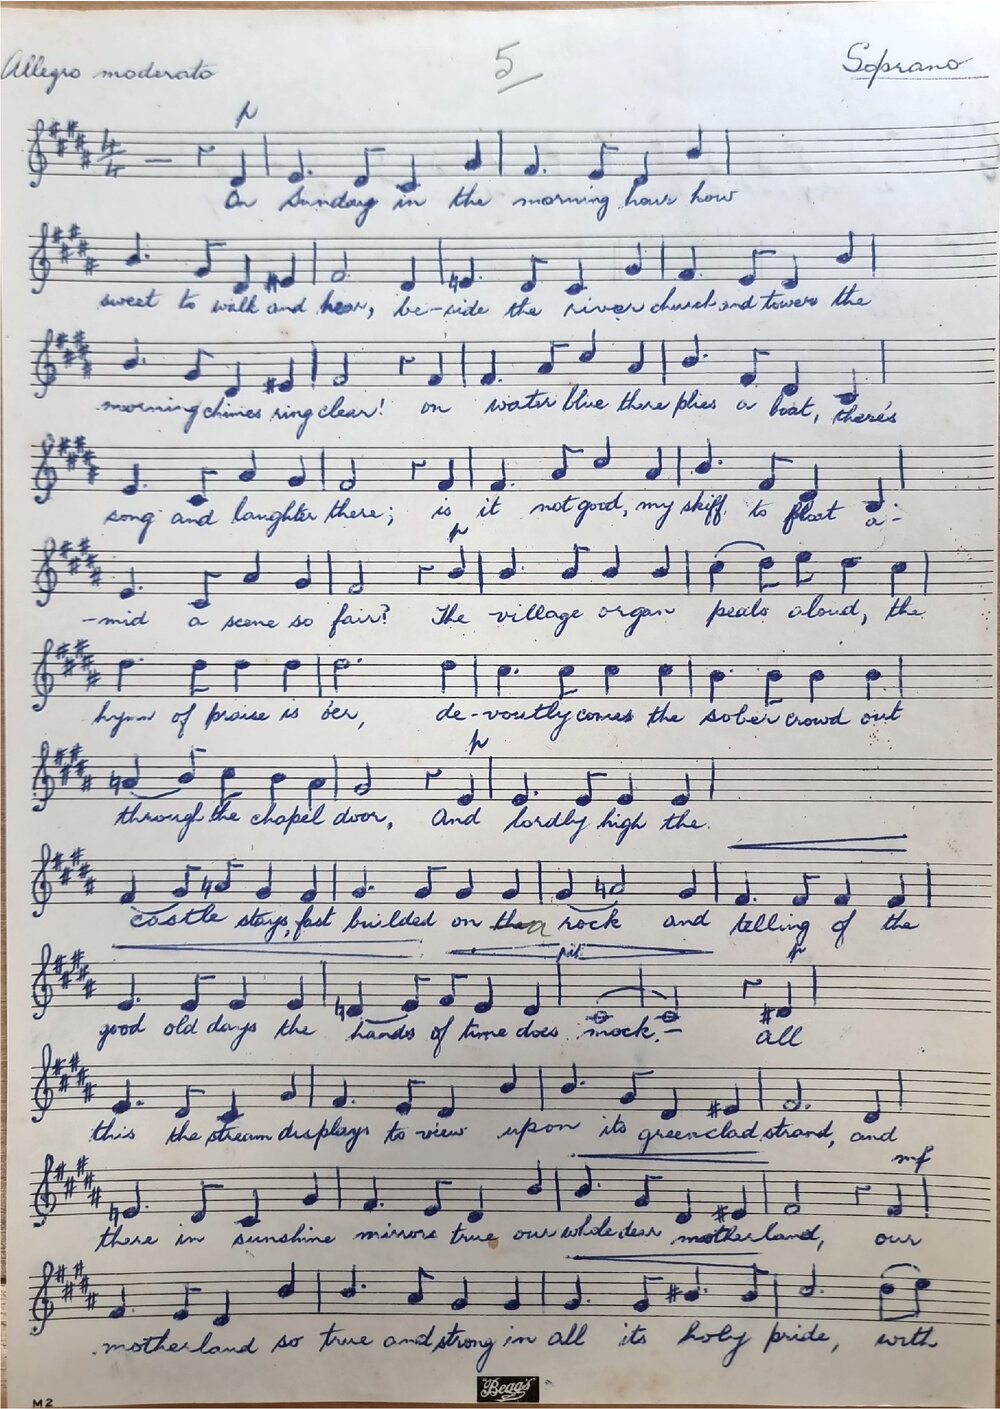 Allegro moderato 5 Soprano
p
On Sunday in the morning hour how
sweet to walk and hear, be-side the river church and tower the
morning chimes ring clear! on water blue there plies a boat, there's
song and laughter there; is it not good, my skiff to float a-
p
-mid a scene so fair? The village organ peals aloud, the
hymn of praise is o'er, de-voutly comes the sober crowd out
p
through the chapel door, And lordly high the.
castle stays, fast builded on the a rock and telling of the
p
good old days the hands of time does mock.- all
this the stream displays to view upon its greenclad strand, and
mf
there in sunshine mirrors true our whole dear motherland, our
motherland so true and strong in all its holy pride, with
Begg's
M2